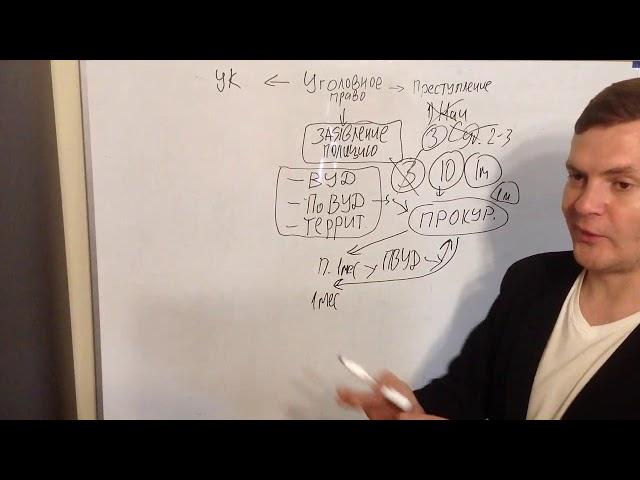 УК ← Уголовное право → Преступление
1) Нач
3 Сут. 2-3
ЗАЯВЛЕНИЕ
ПОЛИЦИЮ
3 10 1м
- ВУД
1м
- ПОВУД
ПРОКУР.
- ТЕРРИТ.
П. 1мес → ПВУД
1мес